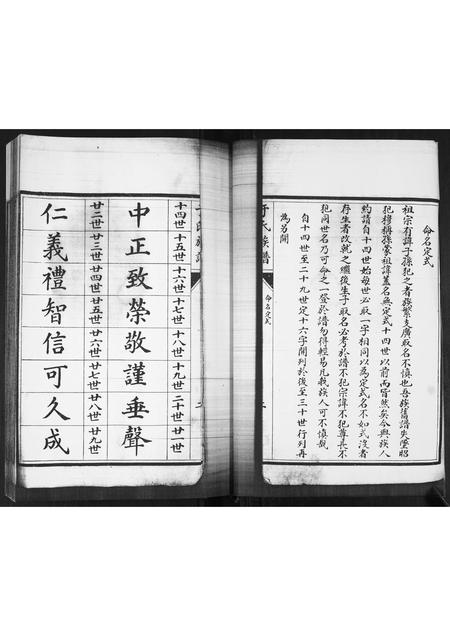 命名定式
祖宗有諱子孫犯之者族繁支廣取名不慎也吾族舊譜失墜昭
犯穆稱孫蒙祖諱蓋名無定式十四世以前而皆然矣今與族人
約請自十四世始每世必取一字相同以為定式名不如式沒者
存生者改執之繼後生子取名必考於譜不犯宗諱不犯尊長不
犯同世名乃可命之一登於譜勿得輕易凡我族人可不慎哉
自十四世至二十九世定十六字開列於後至三十世行列再
為另開
氏族譜
命名定式
十四世 十五世 十六世 十七世 十八世 十九世 二十世 廿一世
中正致榮敬謹垂聲
廿二世 廿三世 廿四世 廿五世 廿六世 廿七世 廿八世 廿九世
仁義禮智信可久成